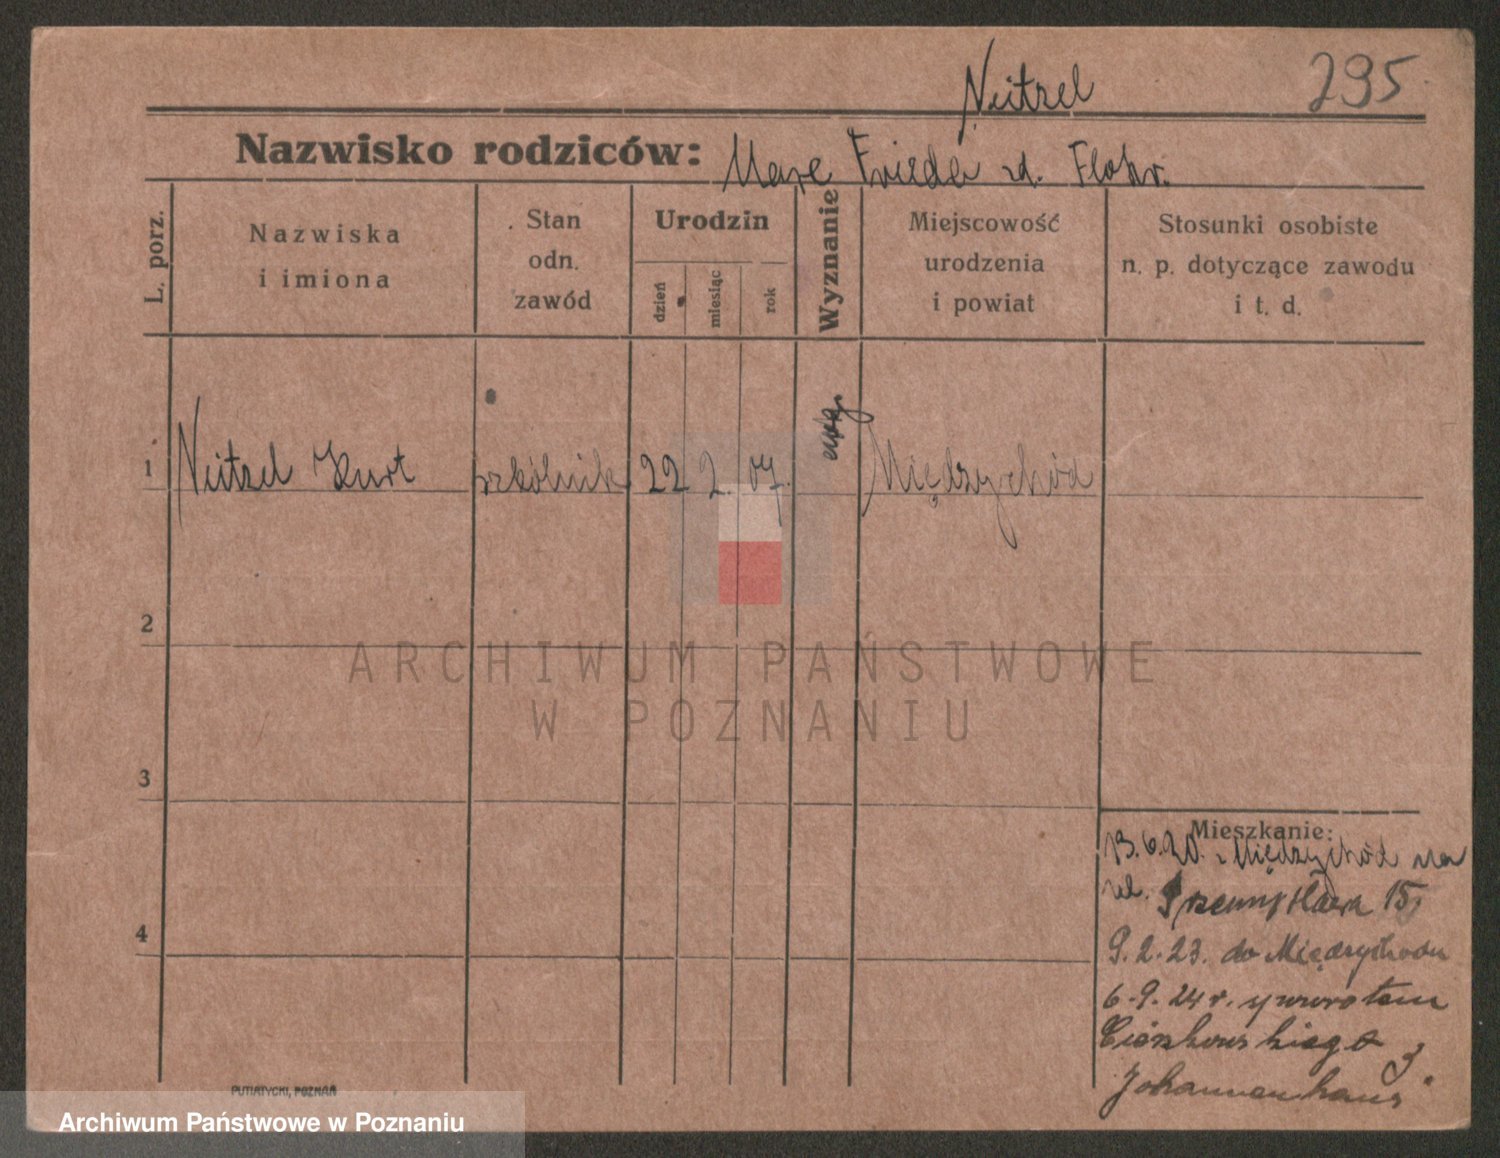 295
Neitzel
Nazwisko rodziców: Max Frieda zd. Flohr.
L. porz.
Nazwiska
i imiona
Stan
odn.
zawód
Urodzin
dzień
miesiąc
rok
Wyznanie
Miejscowość
urodzenia
i powiat
Stosunki osobiste
n. p. dotyczące zawodu
i t. d.
1 Neitzel Kurt szkólnik 22 2. 07. ewg. Międzychód
2
3
4
Mieszkanie:
13.6.20. z Międzychód na
ul. Przemysława 15,
9.2.23. do Międzychodu
6.9.24 r. z powrotem
Cieszkowskiego 3
Johannenhaus
PUTIATYCKI, POZNAŃ
ARCHIWUM PAŃSTWOWE
W POZNANIU
Archiwum Państwowe w Poznaniu